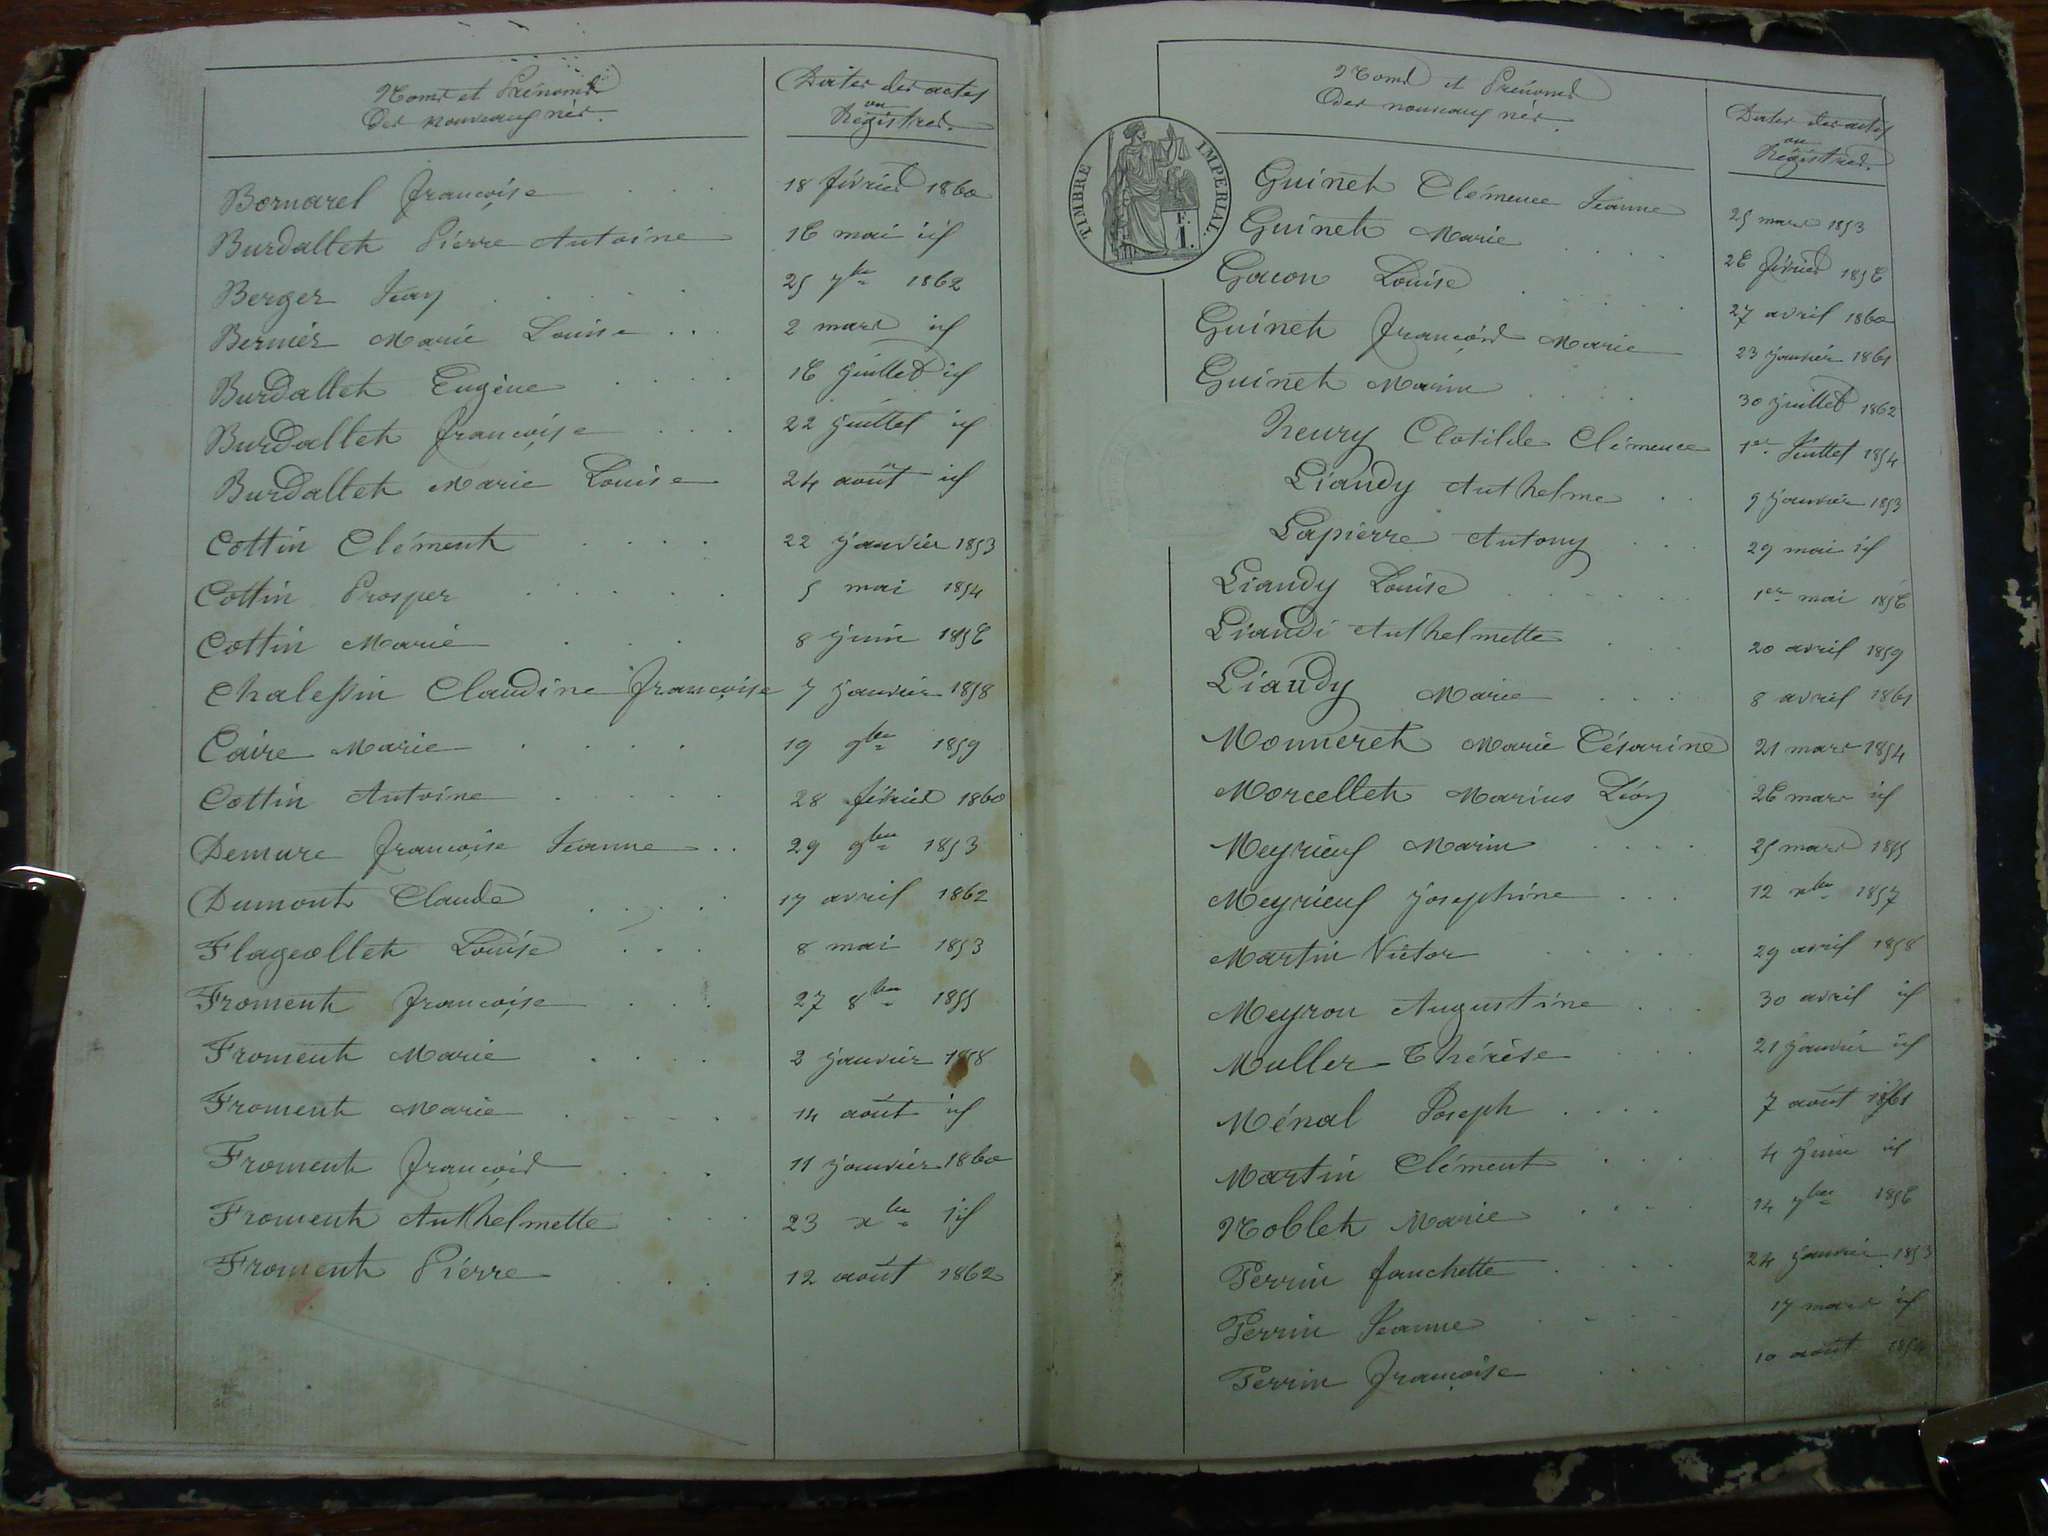 Noms et Prénoms
Des nouveaux nés.
Dates des actes
ou
Régistres.
Bornarel françoise . . . 18 février 1860
Burdallet Pierre Antoine 16 mai id
Berger Jean . . . . . 25 7bre 1862
Bernier Marie Louise . . . 2 mars id
Burdallet Eugène . . . . 16 juillet id
Burdallet françoise . . . 22 juillet id
Burdallet Marie Louise 24 août id
Cottin Clément . . . . 22 janvier 1853
Cottin Prosper . . . . . 5 mai 1854
Cottin Marie . . . 8 juin 1856
Chalessin Claudine françoise 7 janvier 1858
Caire Marie . . . . 19 9bre 1859
Cottin Antoine . . . . . 28 février 1860
Demure françoise Jeanne . . 29 9bre 1853
Dumont Claude . . . . 17 avril 1862
Flageollet Louise . . . 8 mai 1853
Froment françoise . . . 27 8bre 1855
Froment Marie . . . . 2 janvier 1858
Froment Marie . . . . 14 août id
Froment françois . . . . 11 janvier 1860
Froment Anthelmette . . . 23 xbre id
Froment Pierre . . . 12 août 1862
Noms et Prénoms
Des nouveaux nés.
Dates des actes
ou
Régistres.
TIMBRE IMPERIAL.
E.
1.
Guinet Clémence Jeanne 25 mars 1853
Guinet Marie . . . . 26 février 1856
Gacon Louise . . . . . 27 avril 1860
Guinet françois Marie 23 janvier 1861
Guinet Marin . . . . 30 juillet 1862
heury Clotilde Clémence 1er Juillet 1854
Liandy Anthelme . . 9 janvier 1853
Lapierre Antony . . . 29 mai id
Liandy Louise . . . . . . 1er mai 1856
Liandi Anthelmette . . . 20 avril 1859
Liandy Marie . . . . 8 avril 1861
Monneret Marie Césarine 21 mars 1854
Morcellet Marius Léon 26 mars id
Meyrieux Marin . . . . 25 mars 1855
Meyrieux josephine . . . 12 xbre 1857
Martin Victor . . . . . 29 avril 1858
Meyron Augustine . . . 30 avril id
Muller Thérèse . . . 21 janvier id
Ménal Joseph . . . . 7 août 1861
Martin Clément . . . . 4 juin id
Noblet Marie . . . . 14 7bre 1856
Perrin fanchette . . . . 24 janvier 1853
Perrin Jeanne . . . . 17 mars id
Perrin françoise . . . 10 août